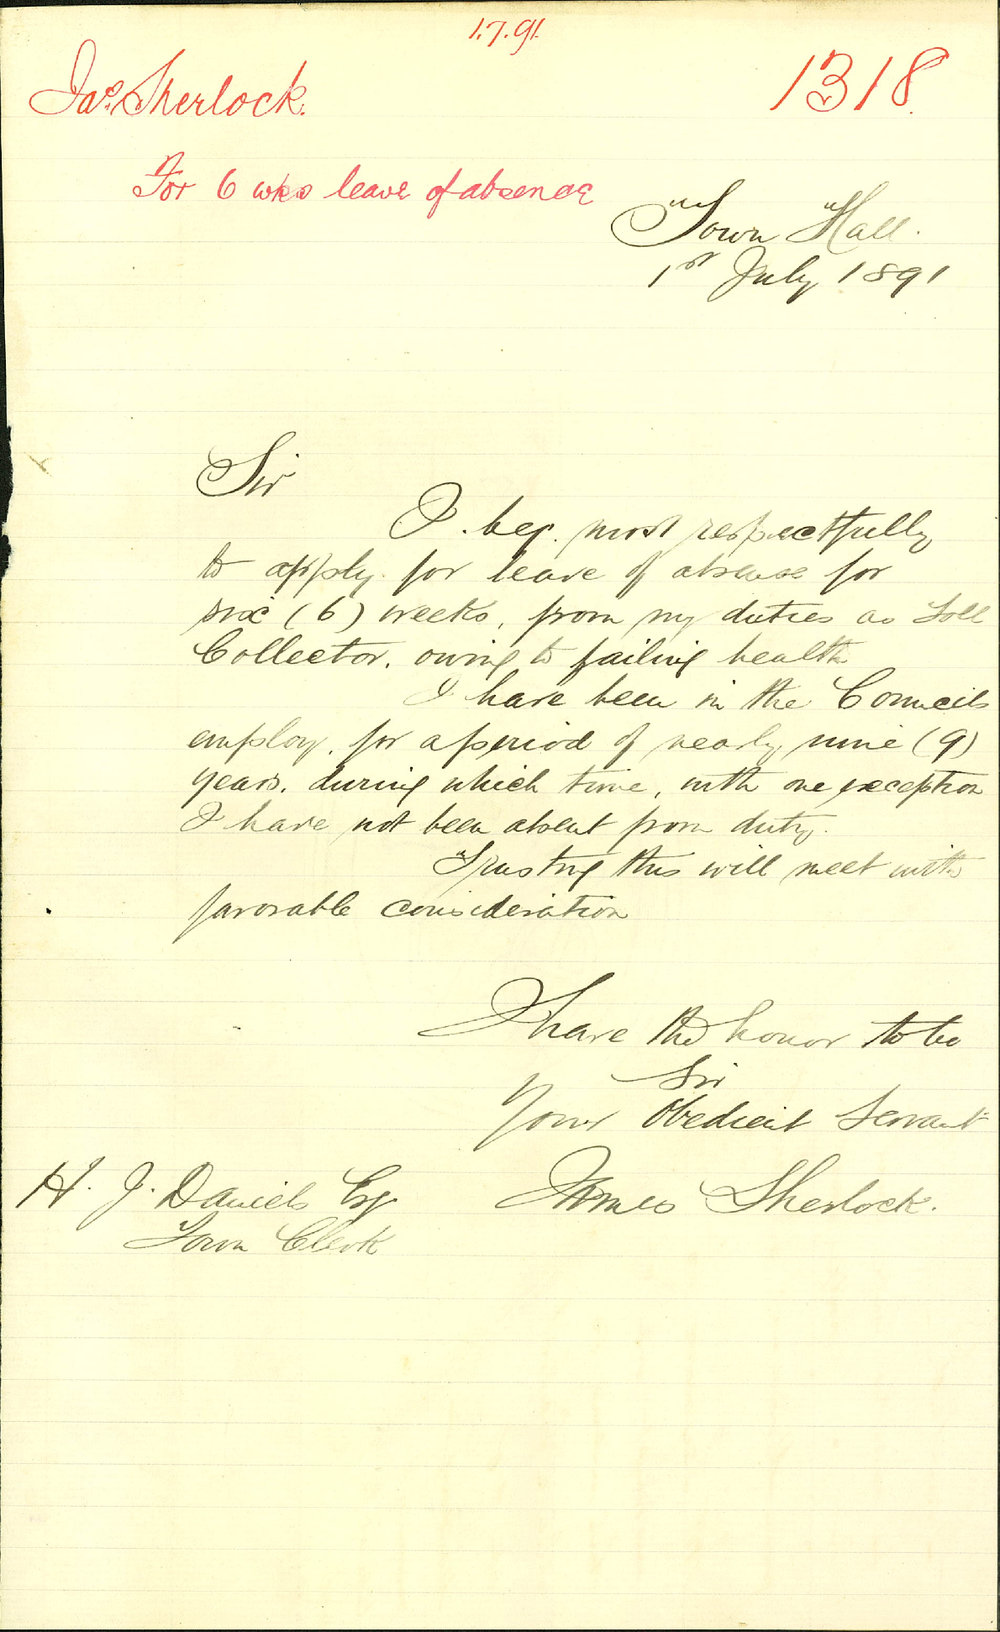 1.7.91.
Jas. Sherlock.
1318.
For 6 wks leave of absence
Town Hall.
1st July 1891
Sir
I beg. most respectfully
to apply. for leave of absence for
six (6) weeks, from my duties as Toll
Collector. owing to failing health
I have been in the Councils
employ, for a period of nearly nine (9)
years. during which time, with one exception
I have not been absent from duty.
Trusting this will meet with
favorable consideration
I have the honor to be
Sir
Your Obedient Servant
James Sherlock.
H. J. Daniels Esq
Town Clerk